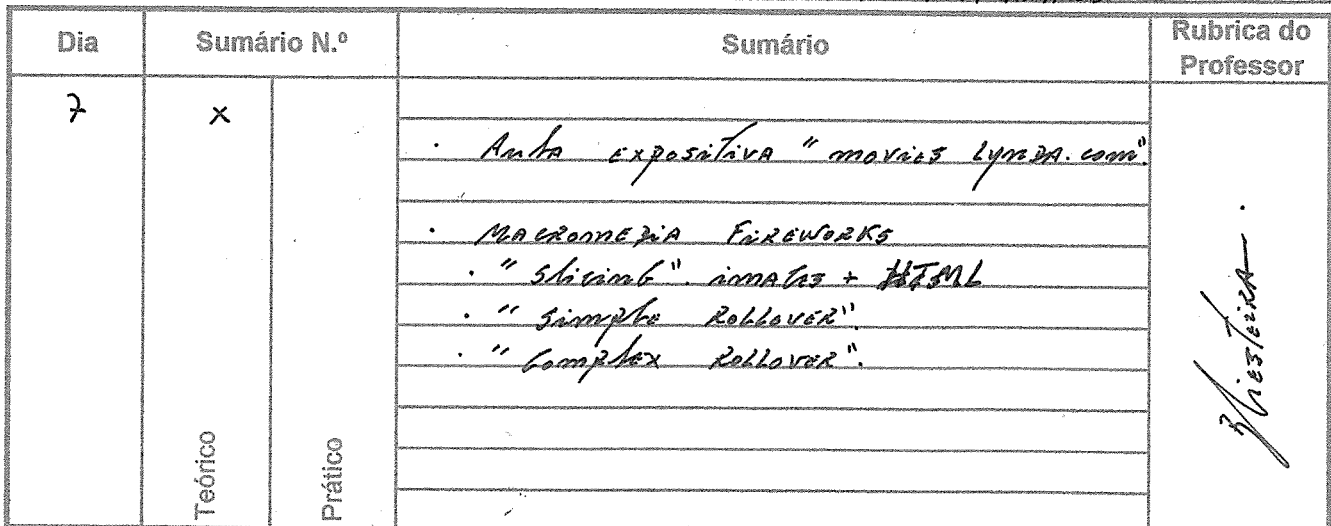 Dia
Sumário N.º
Sumário
Rubrica do
Professor
7
x
. Aula expositiva "movies Lynda.com"
. Macromedia Fireworks
. "Slicing". images + HTML
. "Simple Rollover".
. "Complex Rollover".
Teórico
Prático